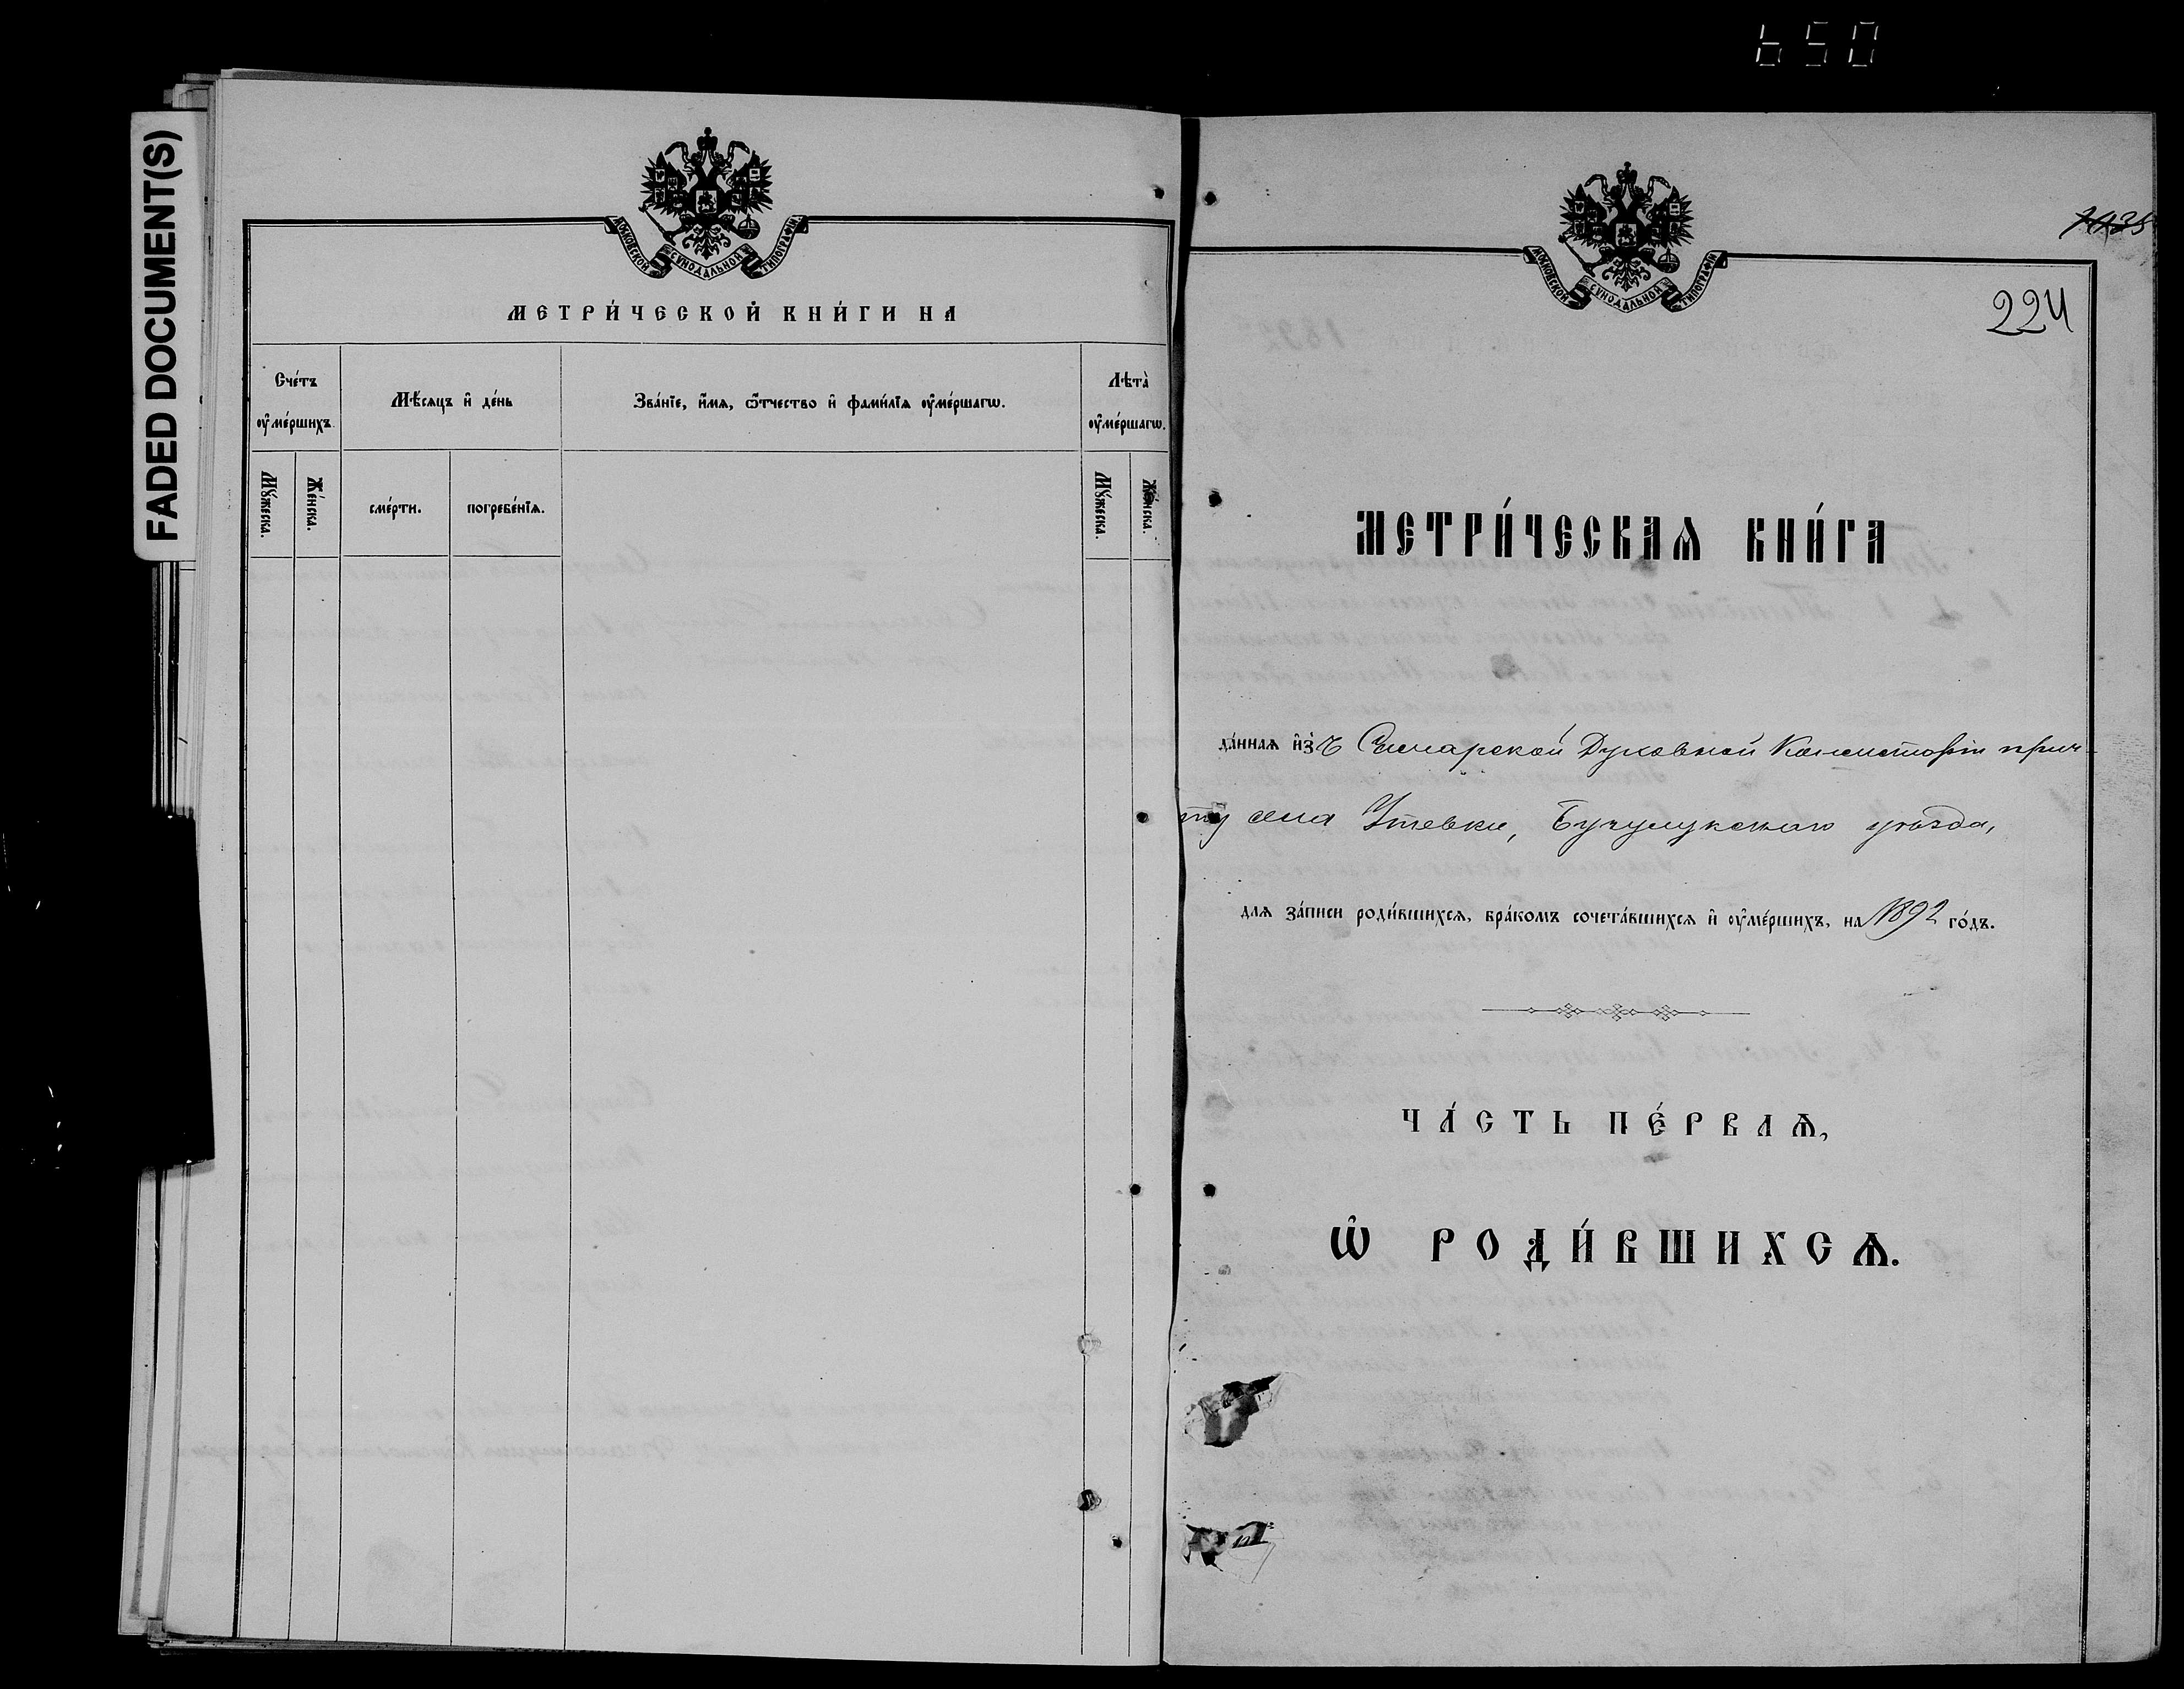 650
FADED DOCUMENT(S)
МОСКОВСКОЙ СѴНОДАЛЬНОЙ ТИПОГРАФІИ
МЕТРИ́ЧЕСКОЙ КНИ́ГИ НА
Сче́тъ ᲂу҆ме́ршихъ.
Мѣ́сяцъ и҆ де́нь
Зва́нїе, и҆́мя, ѻ҆́тчество и҆ фами́лїя ᲂу҆ме́ршагѡ.
Лѣта̀ ᲂу҆ме́ршагѡ.
Му́жеска.
Же́нска.
сме́рти.
погребе́нїѧ.
Му́жеска.
Же́нска.
МОСКОВСКОЙ СѴНОДАЛЬНОЙ ТИПОГРАФІИ
224
МЕТРИ́ЧЕСКАѦ КНИ́ГА
да́ннаѧ и҆зъ Самарской Духовной Консисторіи прич-
ту села Утевки, Бузулукскаго уѣзда,
для за́писи роди́вшихсѧ, бра́комъ сочета́вшихсѧ и҆ ᲂу҆ме́ршихъ, на 1892 го́дъ.
ЧА́СТЬ ПЕ́РВАѦ,
Ѡ҆ РОДИ́ВШИХСѦ.